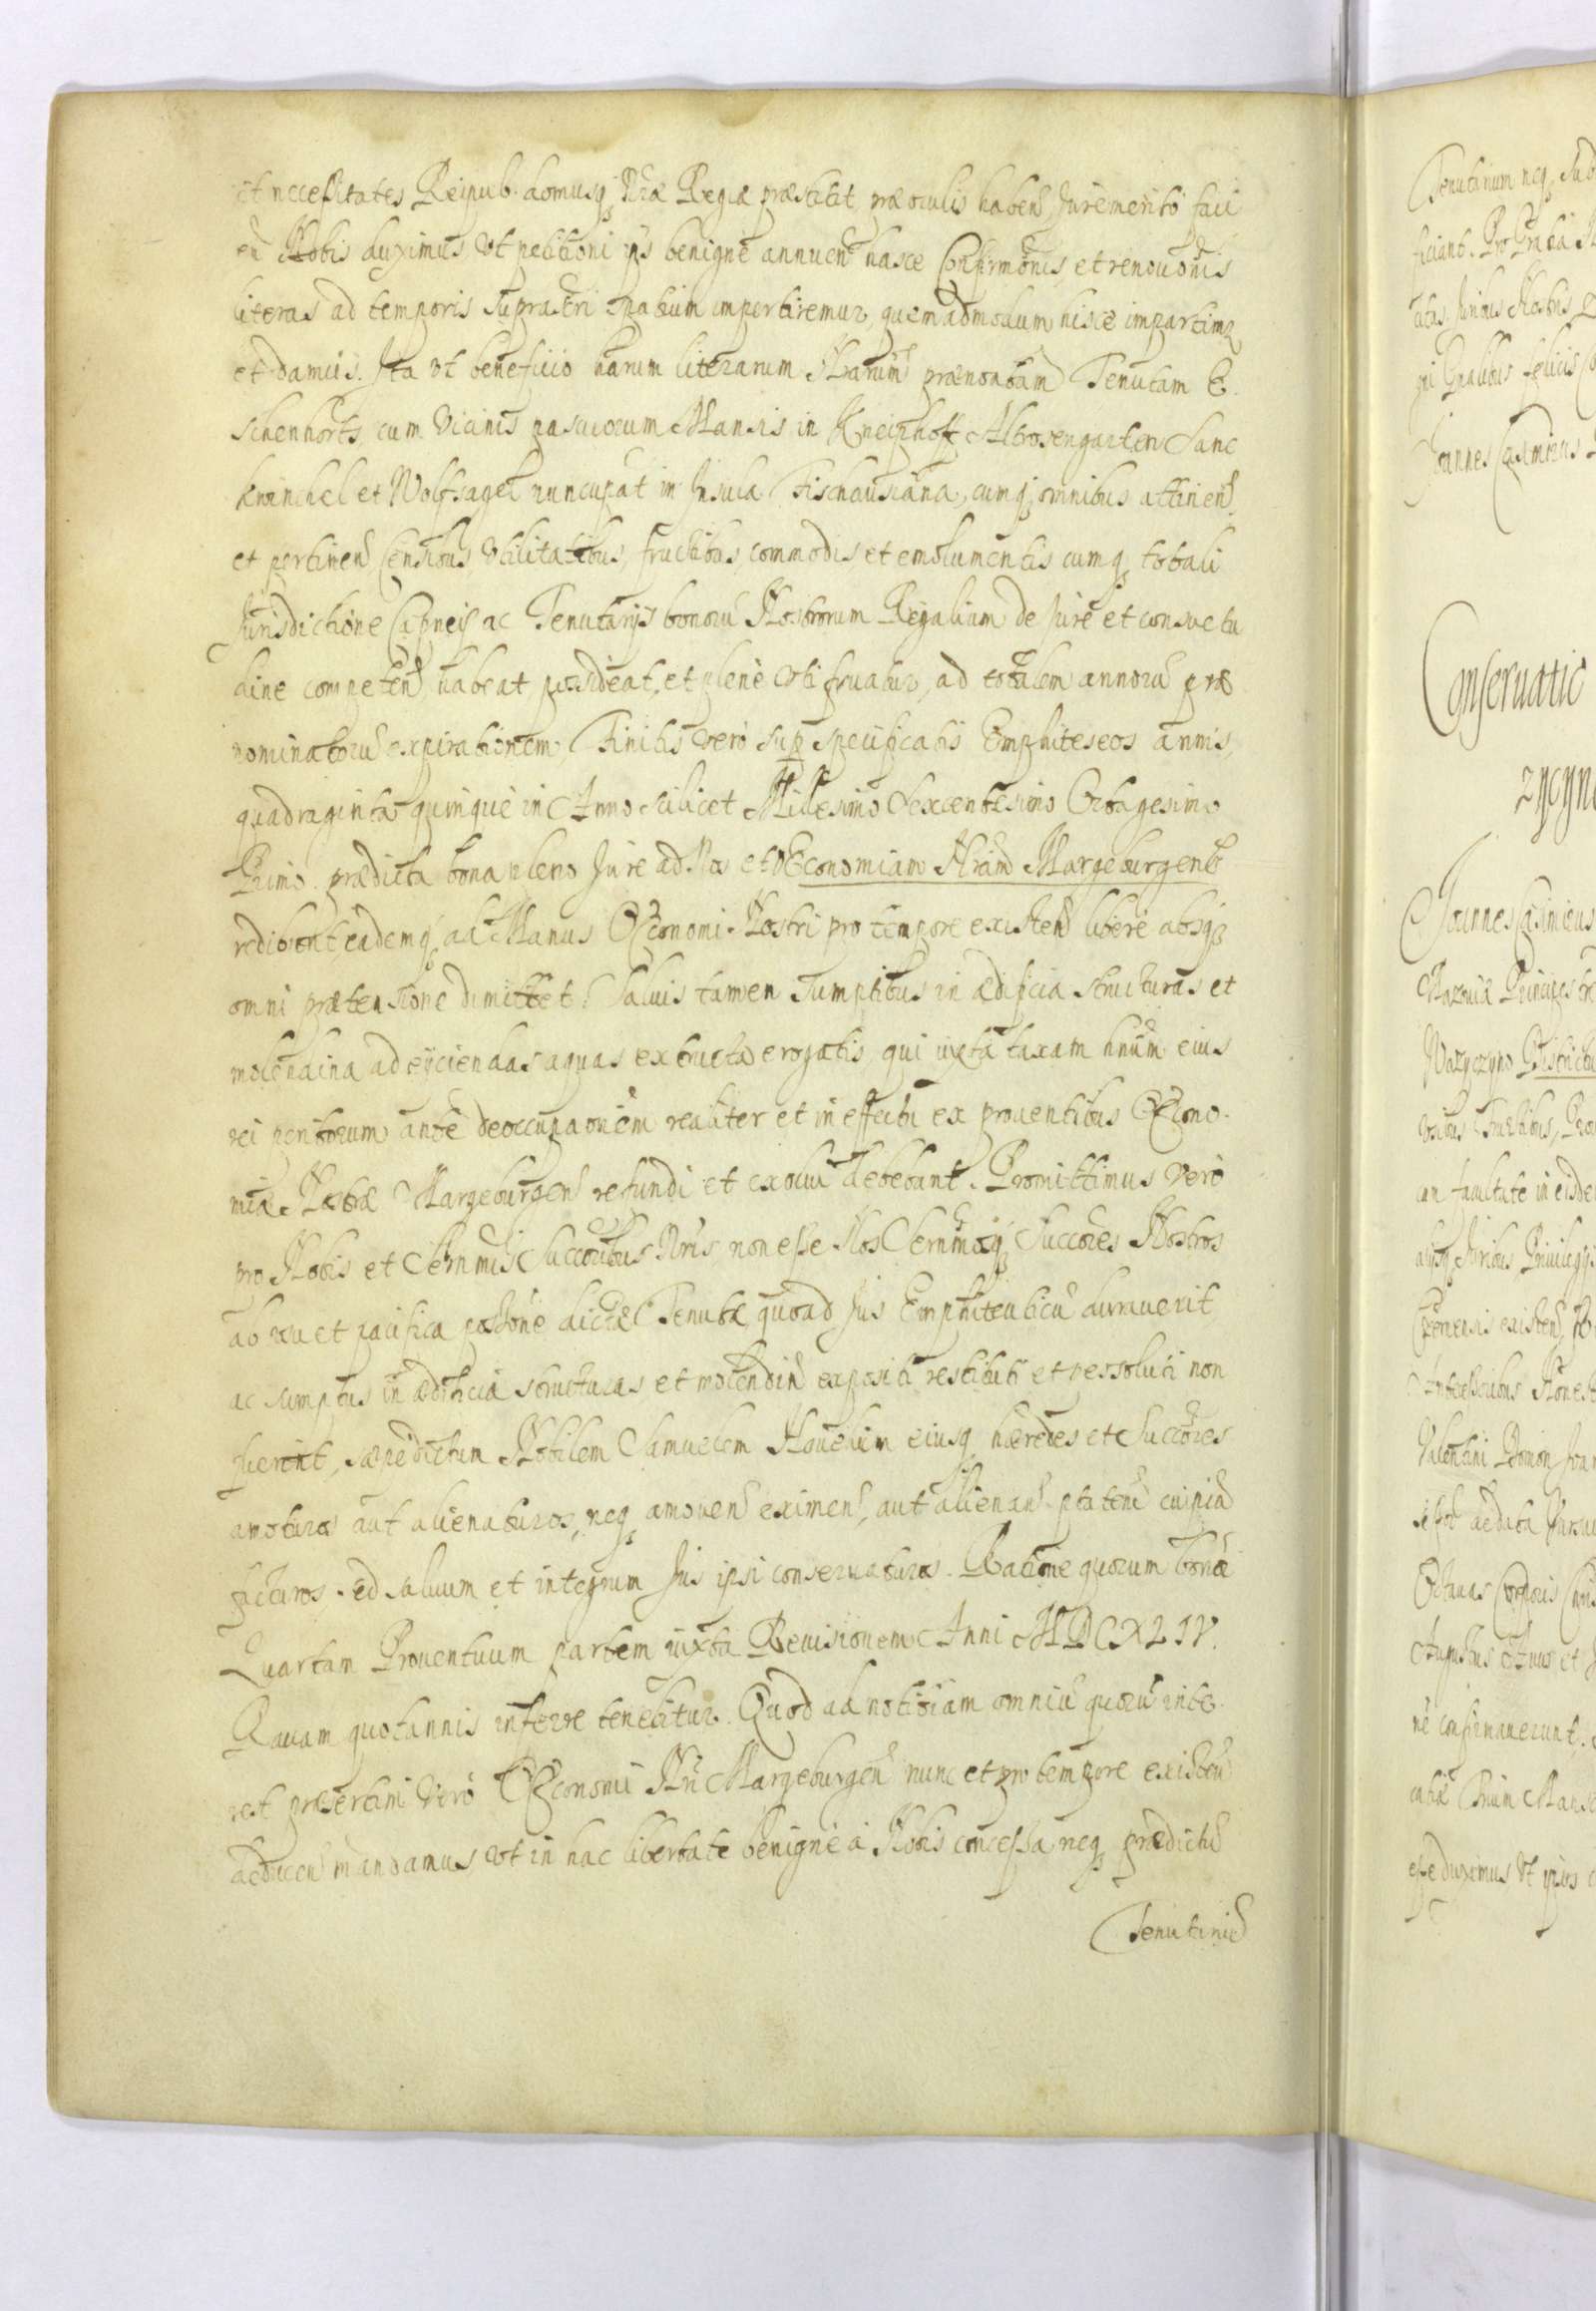 et necessitates Reipub. domusq; Nrae Regiae praestitit, prae oculis haben Jure merito faci
en Nobis duximus Vt petitioni ejus benigne annuen hasce Confirmonis, et renouonis
literas ad temporis supra scri spatium impertiremur, quemadmodum hisce impartimr
et damus. Ita Vt beneficio harum literarum Nrarum praenontam Tenutam E.
schenhorts cum Vicinis pascuorum Mansis in Kneiphoff Altrosengarten Sanc
kwinckel et Wolfsagel nuncupat in Insula Fischausiana, cumq; omnibus attinen
et pertinen Censibus Vtilitatibus, fructibus, commodis, et emolumentis cumq; totali
Jurisdictione Capneis ac Tenutarijs bonoru Nostrorum Regalium de Jure et consuetu
dine competen habeat possideat, et plene Vti fruatur, ad totalem annoru prae
nominatoru expirationem, Finitis vero sup specificatis Emphiteseos annis,
quadraginta quinque in Anno scilicet Millesimo Sexcentesimo Octagesimo
Primo. praedicta bona pleno Jure ad Nos et OEconomiam Nram Margeburgen
redibont, eademq; ad Manus OEconomi Nostri pro tempore existen libere absq;
omni praetensione dimittet. Saluis tamen sumptibus in aedificia structuras et
molendina ad eijciendas aquas extructa erogatis, qui iuxta taxam hnum eius
rei peritorum ante deoccupationem realiter et in effectu ex prouentibus OEcono.
miae Nostrae Margeburgen refundi et exolui debebunt. Promittimus vero
pro Nobis et Sernmis Succoribus Nris, non esse Nos Sernmosq; Succores Nostros
ab usu et pacifica possione dictae Tenutae quoad Jus Emphiteuticu durauerit
ac sumptus in aedificia structuras et molendin expositi restituti et persoluti non
fuerint, saepedictum Nobilem Samuelem eiusq; haeredes et Succores
amoturos aut alienaturos, neq; amouen eximen, aut alienan ptatem cuipia
facturos. sed saluum et integrum Jus ipsi conseruaturos. Ratione quorum bonor
Quartam Prouentuum partem iuxta Reuisionem Anni MDCXLIV.
Rauam quotannis inferre tenebitur. Quod ad notitiam omniu quoru inte.
rest praesertim Vero OEconomi Nri Margeburgen nunc et pro tempore existen
deducen mandamus Vt in hac libertate benigne a Nobis concessa neq; praedictu
Tenutariu
Tenutarium neq; Sub
ficiant. Pro Gratia N
Joannes Casimirus
Conseruatio
Joannes Casimirus
Mazouiae Principes
an facultate in eisde
alijsq; Juribus Priuilegijs
Valentini
Octauas Corporis
Augustus Auus et
ne confirmauerunt.
esse duximus Vt ipsos